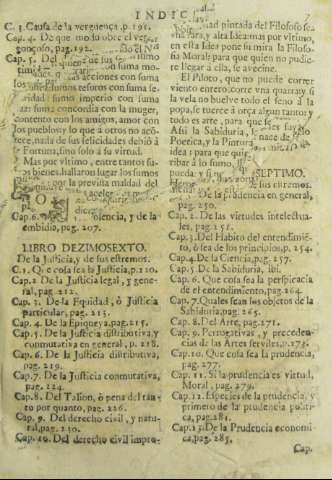 INDICE
C. 3. Causa de la verguença, p. 191.
Cap. 4. De que modo obre el ver-
gonçoso, pag. 192.
Cap. 5. Del
acciones con suma
tesoros con suma
imperio con suma
suma concordia con la muger,
contento con los amigos, amor con
los pueblos y lo que à otros no acó-
rece, nada de sus felicidades debió à
Fortuna, sino solo à su virtud.
Mas por vltimo, entre tantos
bienes, hallaron lugar los sumos
por la prevista maldad del
Cap. 6.
olencia, y de la
embidia, pag. 207.
LIBRO DEZIMOSEXTO.
De la Justicia, y de sus estremos.
C. 1. Que cosa sea la Justicia, p. 210.
Cap. 2 De la Justicia legal, y gene-
ral, pag. 212.
Cap. 3. De la Equidad, ò Justicia
particular, pag. 213.
Cap. 4. De la Epiqueya, pag. 215.
Cap. 5. De la Justicia distributiva, y
conmutativa en general, p. 218.
Cap. 6. De la Justicia distributiva,
pag. 219.
Cap. 7. De la Justicia conmutativa,
pag. 224.
Cap. 8. Del Talion, ò pena del tan-
to por quanto, pag. 226.
Cap. 9. Del derecho civil, y natu-
ral, pag. 230.
Cap. 10. Del derecho civil impro-
pintada del Filosofo
y alta Idea: mas por vltimo,
en esta Idea pone su mira la Filoso-
fia Moral para que quien no pudie-
re llegar à ella, se avecine.
El Piloto, que no puede correr
viento entero, corre vna quarta, y si
la vela no buelve todo el seno à la
popa, se tuerce à orça algun tanto, y
todo es arte, para que
Assi la Sabiduria,
Poetica, y la Pintura
idea para que quien
ribar à lo sumo,
pueda; y si no
SEPTIMO.
sus estremos.
De la Prudencia en general,
pag. 250.
Cap. 2. De las virtudes intelectua-
les, pag. 251.
Cap. 3. Del Habito del entendimié-
to, ò sea de los principios, p. 254.
Cap. 4. De la Ciencia, pag. 257.
Cap. 5. De la Sabiduria, ibi.
Cap. 6. Que cosa sea la perspicacia
de el entendimiento, pag. 264.
Cap. 7. Quales sean los objetos de la
Sabiduria, pag. 265.
Cap. 8. Del Arte, pag. 271.
Cap. 9. Perrogativas, y preceden-
cias de las Artes serviles, p. 273.
Cap. 10. Que cosa sea la prudencia,
pag. 277.
Cap. 11. Si la prudencia es virtud
Moral, pag. 279.
Cap. 12. Especies de la prudencia, y
primero de la prudencia politi-
ca, pag. 281.
Cap. 13. De la Prudencia economi-
ca, pag. 285.
Cap.